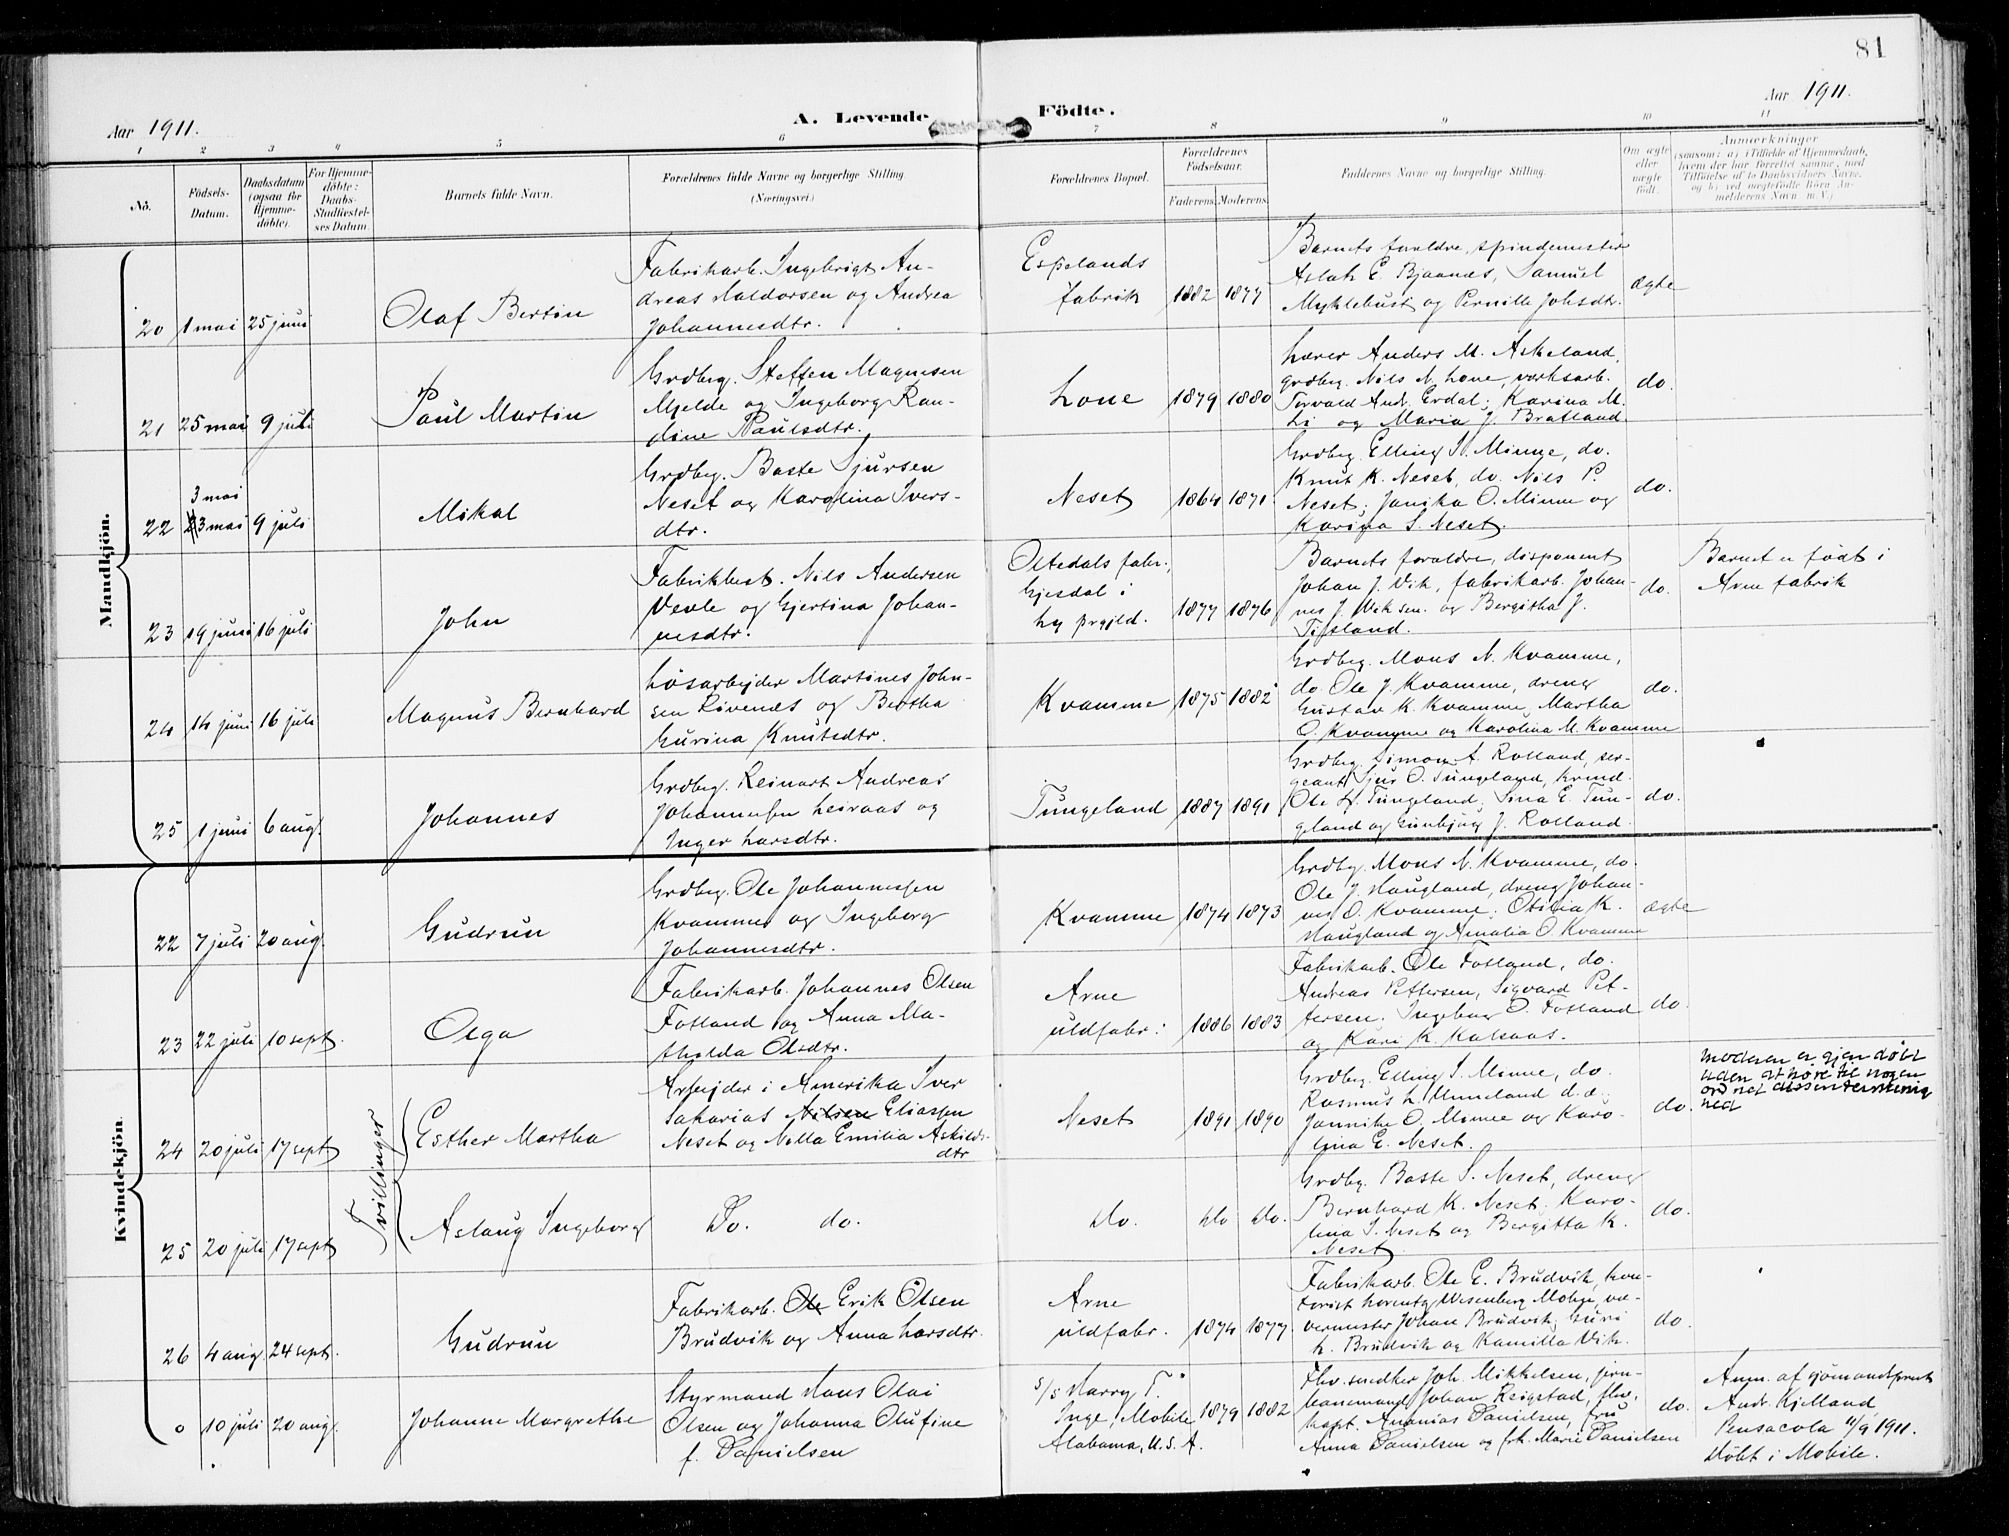 81
Aar 1911.
A. Levende Födte.
Aar 1911.
1 2 3 4 5 6 7 8 9 10 11
No.
Födsels-Datum.
Daabsdatum (ogsaa for Hjemme-döbte).
For Hjemme-döbte: Daabs-Stadfæstel-ses Datum.
Barnets fulde Navn.
Forældrenes fulde Navne og borgerlige Stilling.
(Næringsvei.)
Forældrenes Bopæl.
Forældrenes Födselsaar.
Faderens. Moderens.
Faddernes Navne og borgerlige Stilling.
Om ægte eller uægte födt.
Anmærkninger
(saasom: a) i Tilfælde af Hjemmedaab, hvem der har forrettet samme, med Tilföielse af to Daabsvidners Navne, og b) ved uægtefödte Börn An-melderens Navn m. V.)
Mandkjön.
20 1 mai 25 juni
Olaf Bertin
Fabrikarb. Ingebrigt An-
dreas Haldorsen og Andrea
Johannesdtr.
Espelands
fabrik
1882 1877
Barnets foreldre, spindemester
Aslak E. Bjaanes, Samuel
Myklebust og Pernille Johsdtr.
ægte
21 25 mai 9 juli
Paul Martin
Grdbrg. Steffen Magnesen
Mjelde og Ingeborg Ran-
dine Paulsdtr.
Lone
1879 1880
Lærer Anders M. Askeland,
grdbrg. Nils N. Lone, verksarb.
Torvald Andr. Erdal; Karina M.
Li og Maria J. Bratland
do.
22 3 mai 9 juli
3 mai
Mikal
Grdbrg. Baste Sjursen
Neset og Karolina Ivers-
dtr.
Neset
1864 1871
Grdbrg. Elling S. Minne, do.
Knut K. Neset, do. Nils P.
Neset; Janika O. Minne og
Karina S. Neset.
do.
23 19 juni 16 juli
John
Fabrikbest. Nils Andersen
Vevle og Gjertina Johan-
nesdtr.
Oltedals fabr.,
Gjesdal i
Ly prgjld.
1877 1876
Barnets foreldre, disponent
Johan J. Vik, fabrikarb. Johan-
nes J. Viksen og Bergitha J.
do.
Barnet er født i
Arne fabrik
24 14 juni 16 juli
Magnus Bernhard
Løsarbejder Martines John-
sen Røvenes og Bertha
Gurina Knutsdtr.
Kvamme
1875 1882
Grdbrg. Mons N. Kvamme,
do. Ole J. Kvamme, dreng
Gustav K. Kvamme, Martha
O. Kvamme og Karolina M. Kvamme
do.
25 1 juni 6 aug.
Johannes
Grdbrg. Reinart Andreas
Johannessen Leiraas og
Inger Larsdtr.
Tungeland
1887 1891
Grdbrg. Simon A. Rolland, ser-
geant Sjur O. Tungeland,
Ole Tungeland; Sina E. Tun-
geland og Gunbjørg J. Rolland.
do.
Kvindekjön.
22 7 juli 20 aug.
Gudrun
Grdbrg. Ole Johannessen
Kvamme og Ingeborg
Johannesdtr.
Kvamme
1874 1873
Grdbrg. Mons N. Kvamme, do.
Ole J. Haugland, dreng Johan-
nes O. Kvamme; Otilia K.
Haugland og Amalia O. Kvamme
ægte
23 22 juli 10 sept.
Olga
Fabrikarb. Johannes Olsen
Fotland og Anna Ma-
thilda Olsdtr.
Arne
uldfabr.
1886 1883
Fabrikarb. Ole Fotland, do.
Andreas Pettersen, Sigvard Pet-
tersen. Ingeborg O. Fotland
og Kari K. Kalsaas.
do.
24 20 juli 17 sept
Tvillinger
Esther Martha
Arbejder i Amerika Iver
Sakarias Nilsen Eliassen
Neset og Nella Emilia Askilds-
dtr
Neset
1891 1890
Grdbrg. Elling S. Minne, do.
Rasmus L. Unneland d.æ.;
Jannike O. Minne og Karo-
lina E. Neset.
do.
moderen er gjendøbt
uden at høre til nogen
ordnet dissentermenig
hed
25 20 juli 17 sept
Aslaug Ingeborg
Do. do.
Do.
Do Do.
Grdbrg. Baste S. Neset, dreng
Bernhard K. Neset; Karo-
lina I. Neset og Bergitta K.
Neset
do.
26 4 aug. 24 sept.
Gudrun
Fabrikarb. Ole Erik Olsen
Brudvik og Anna Larsdtr.
Arne
uldfabr.
1874 1877
Fabrikarb. Ole E. Brudvik, kon-
torist Wesenberg Mohge, væ-
vermester Johan Brudvik; Guri
L. Brudvik og Kamilla Vik.
do.
0 10 juli 20 aug.
Johanne Margrethe
Styrmand Hans Olai
Olsen og Johanna Olufine
f. Danielsen
s/s Harry T.
Inge, Mobile
Alabama, U.S.A.
1879 1882
Fhv. smedker Joh. Mikkelsen, jern-
banemand Johan Reigstad, fhv.
kapt. Ananias Danielsen, fru
Anna Danielsen og frk. Marie Danielsen
do.
Anm. af sjømandsprest
Andr. Kjelland,
Pensacola 11/9 1911.
Døbt i Mobile.